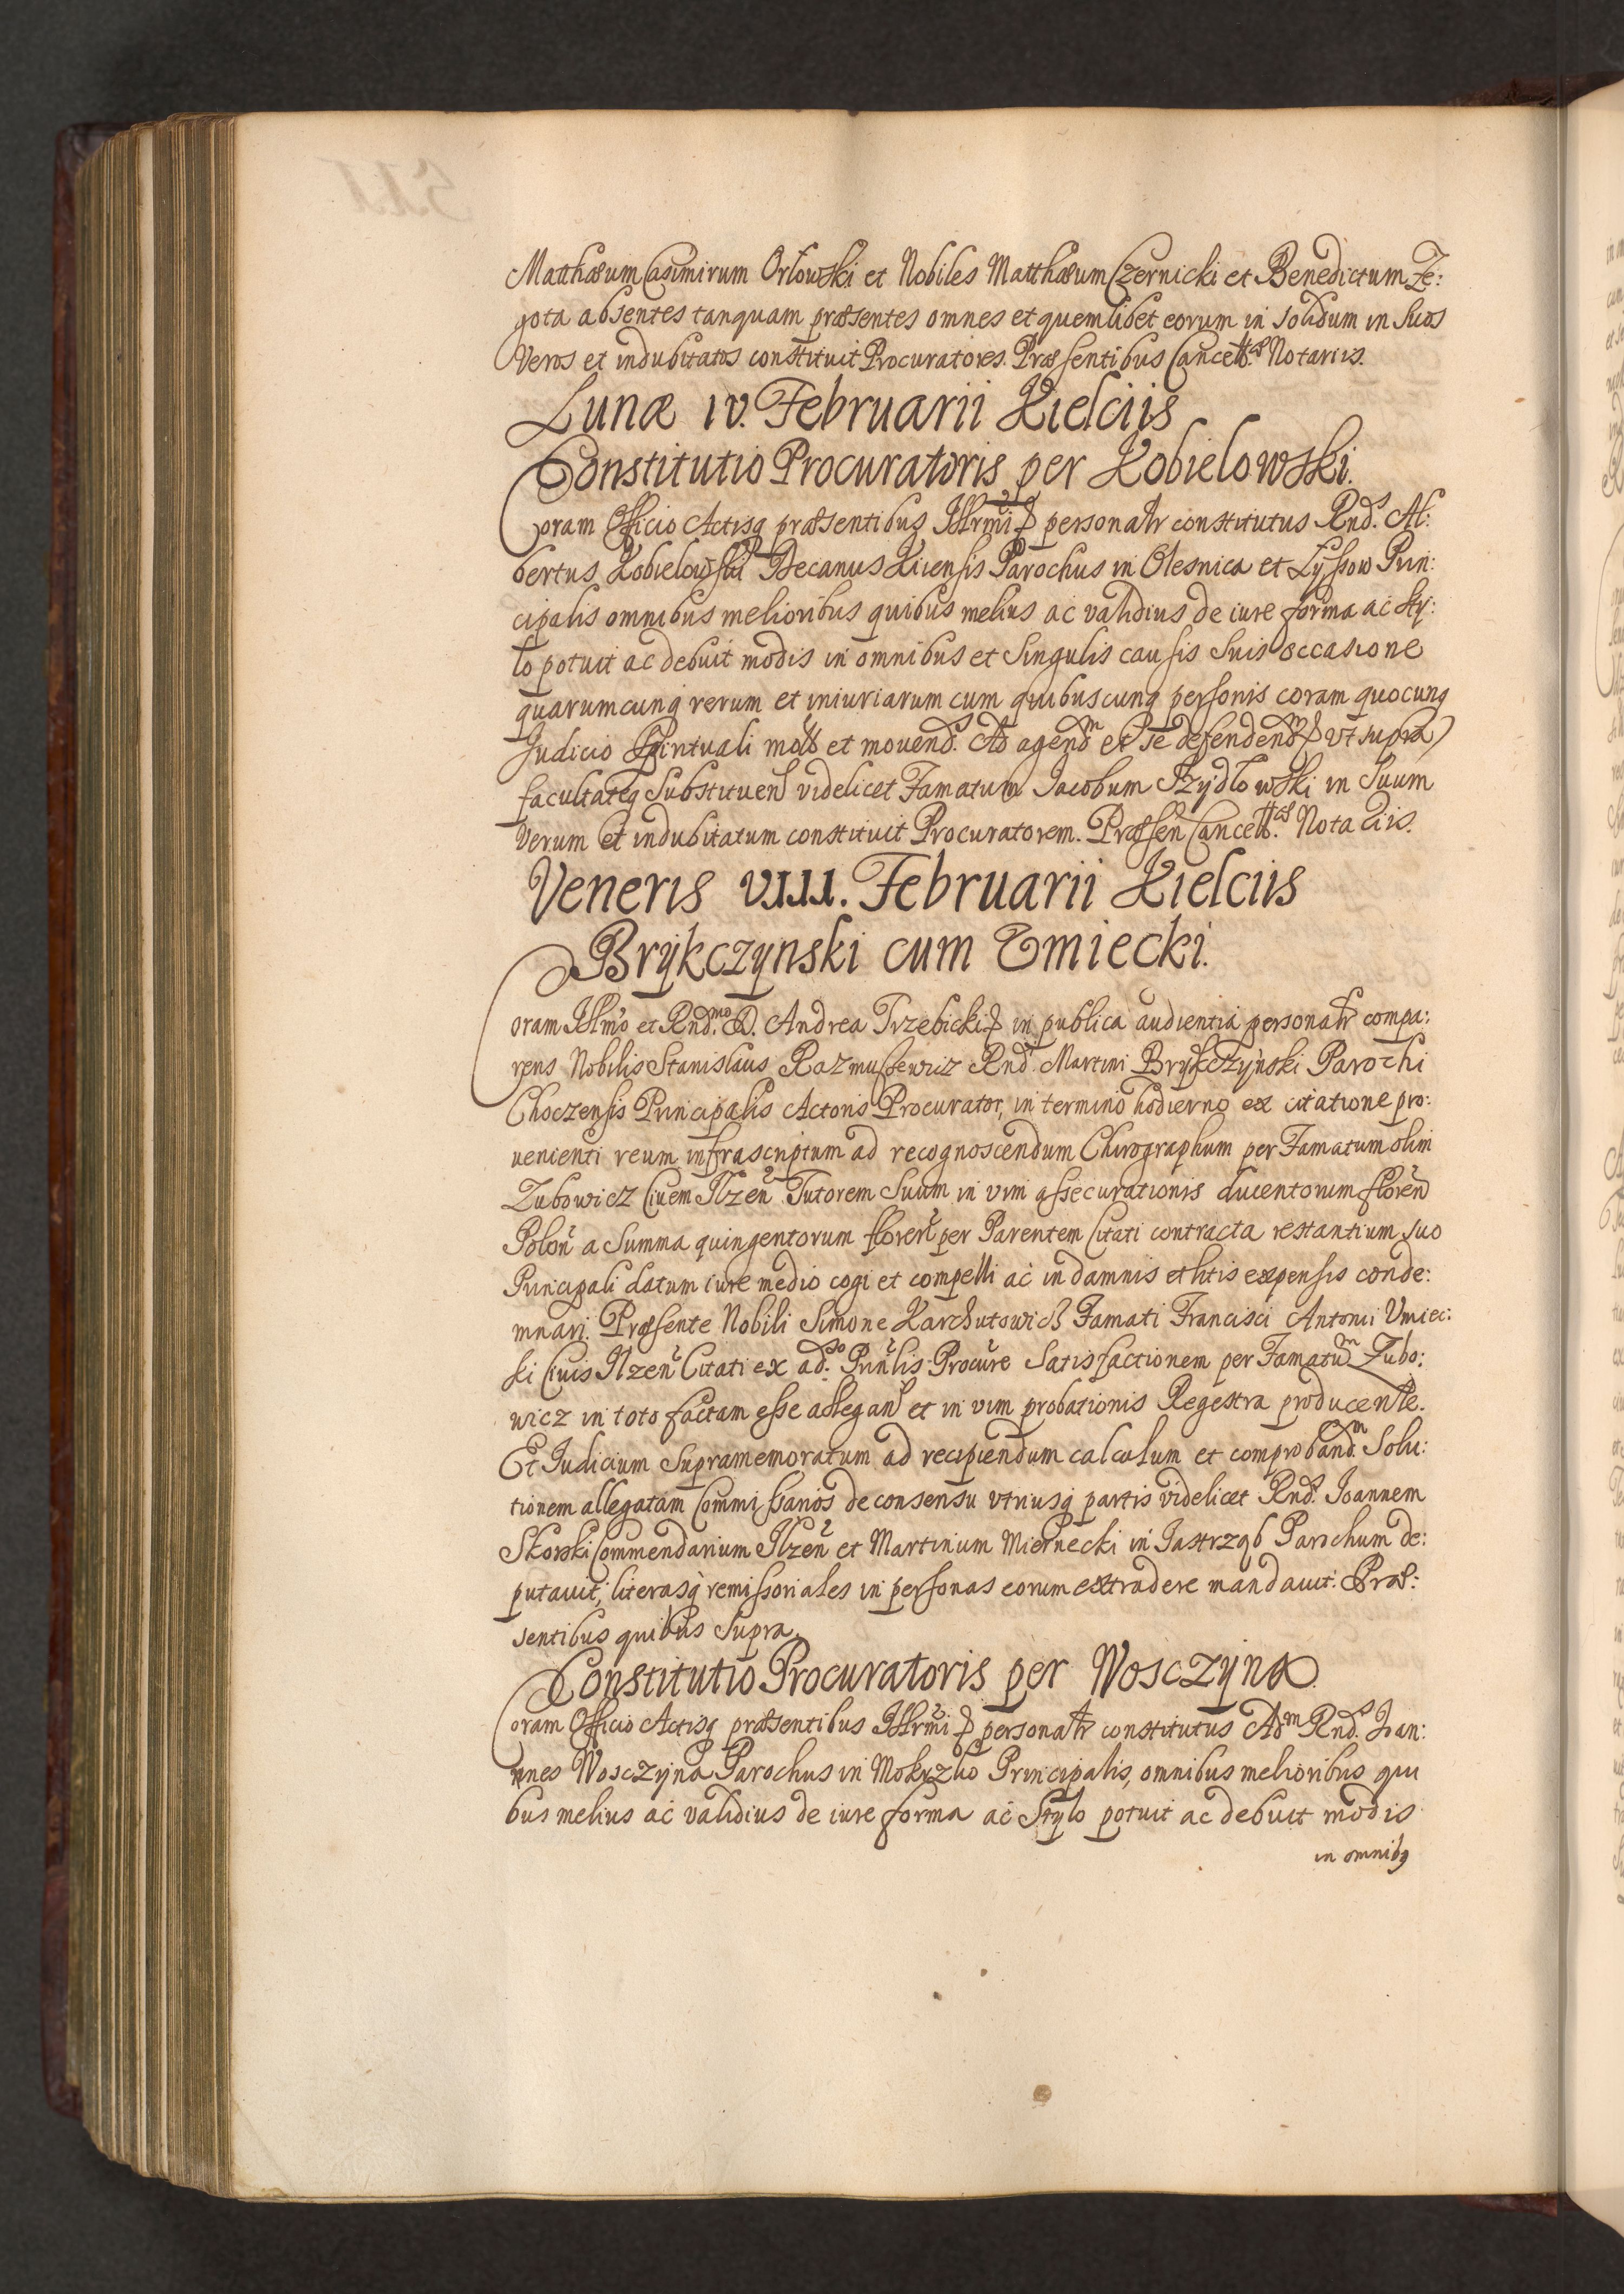 Matthæum Casimirum Orłowski et Nobiles Matthæum Czernicki et Benedictum Ze:
gota absentes tanquam præsentes omnes et quemlibet eorum in solidum in Suos
Veros et indubitatos constituit Procuratores. Præsentibus Cancell. Notariis.
Lunæ IV. Februarii Kielciis
Constitutio Procuratoris per Kobielowski.
Coram Officio Actisq præsentibus Illrmi personalr constitutus Rnd. Al:
bertus Kobielowski Decanus Kiiensis Parochus in Olesnica et Lyssow Prin:
cipalis omnibus melioribus quibus melius ac validius de iure forma ac Sty:
lo potuit ac debuit modis in omnibus et Singulis causis Suis occasione
quarumcunq rerum et iniuriarum cum quibuscunq personis coram quocunq
Judicio Spirituali mot et mouend. Ad agendm et se defendendm ut supra
facultateq Substituen videlicet Famatum Jacobum Szydłowski in Suum
Verum et indubitatum constituit Procuratorem. Præsen Cancell. Notariis.
Veneris VIII. Februarii Kielciis
Brykczynski cum Umiecki.
Coram Illmo et Rndmo D. Andrea Trzebicki in publica audientia personalr compa:
rens Nobilis Stanislaus Razmussewicz Rnd Martini Brykczynski Parochi
Choczensis Principalis Actoris Procurator, in termino hodierno ex citatione pro:
uenienti reum infrascriptum ad recognoscendum Chirographum per Famatum olim
Zubowicz Ciuem Ilzen Tutorem Suum in vim assecurationis ducentorum floren
Polon a Summa quingentorum floren per Parentem Citati contracta restantium suo
Principali datum iure medio cogi et compelli ac in damnis et litis expensis conde:
mnari. Præsente Nobili Simone Karchutowicz Famati Francisci Antonii Umiec:
ki Ciuis Ilzen Citati ex ad.so Prinlis Procure Satisfactionem per Famatum Zubo:
wicz in toto factam esse allegan et in vim probationis Regestra producente.
Et Judicium Supramemoratum ad recipiendum calculum et comproband.m Solu:
tionem allegatam Commissarios de consensu vtriusq partis videlicet Rnd. Joannem
Skorski Commendarium Ilzen et Martinum Miernecki in Jastrząb Parochum de:
putauit, literasq remissoriales in personas eorum extradere mandauit. Præ:
sentibus quibus Supra.
Constitutio Procuratoris per Wosczyna
Coram Officio Actisq præsentibus Illrmi personalr constitutus Adm Rnd. Joan:
nnes Wosczyna Parochus in Mokrzko Principalis, omnibus melioribus qui
bus melius ac validius de iure forma ac Stylo potuit ac debuit modis
in omnibq